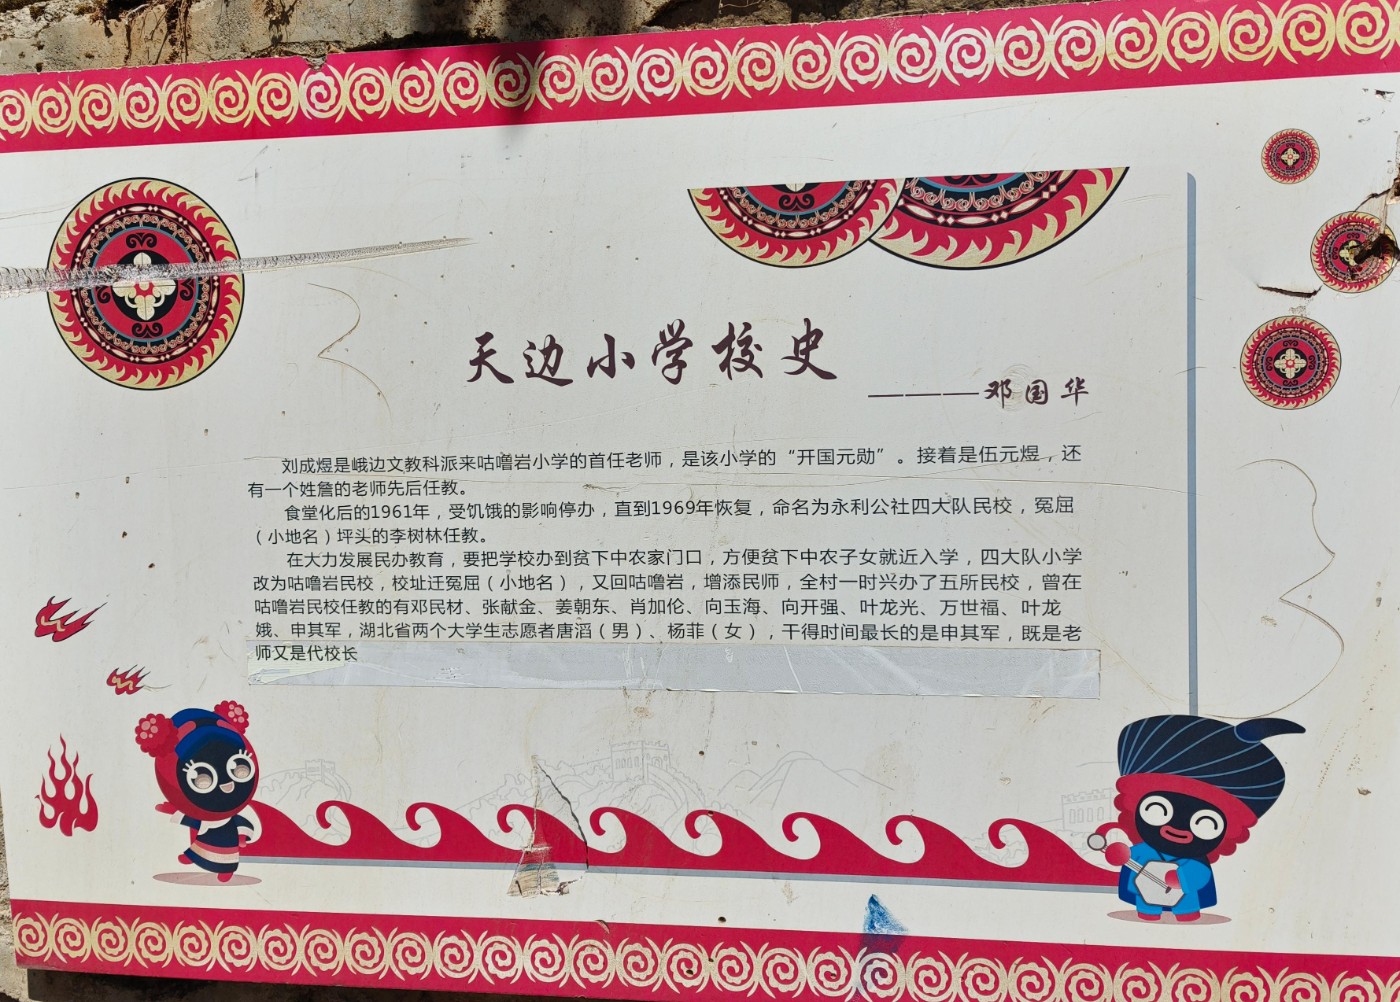 天边小学校史
———邓国华
刘成煜是峨边文教科派来咕噜岩小学的首任老师，是该小学的“开国元勋”。接着是伍元煜，还
有一个姓詹的老师先后任教。
食堂化后的1961年，受饥饿的影响停办，直到1969年恢复，命名为永利公社四大队民校，冤屈
（小地名）坪头的李树林任教。
在大力发展民办教育，要把学校办到贫下中农家门口，方便贫下中农子女就近入学，四大队小学
改为咕噜岩民校，校址迁冤屈（小地名），又回咕噜岩，增添民师，全村一时兴办了五所民校，曾在
咕噜岩民校任教的有邓民材、张献金、姜朝东、肖加伦、向玉海、向开强、叶龙光、万世福、叶龙
娥、申其军，湖北省两个大学生志愿者唐滔（男）、杨菲（女），干得时间最长的是申其军，既是老
师又是代校长